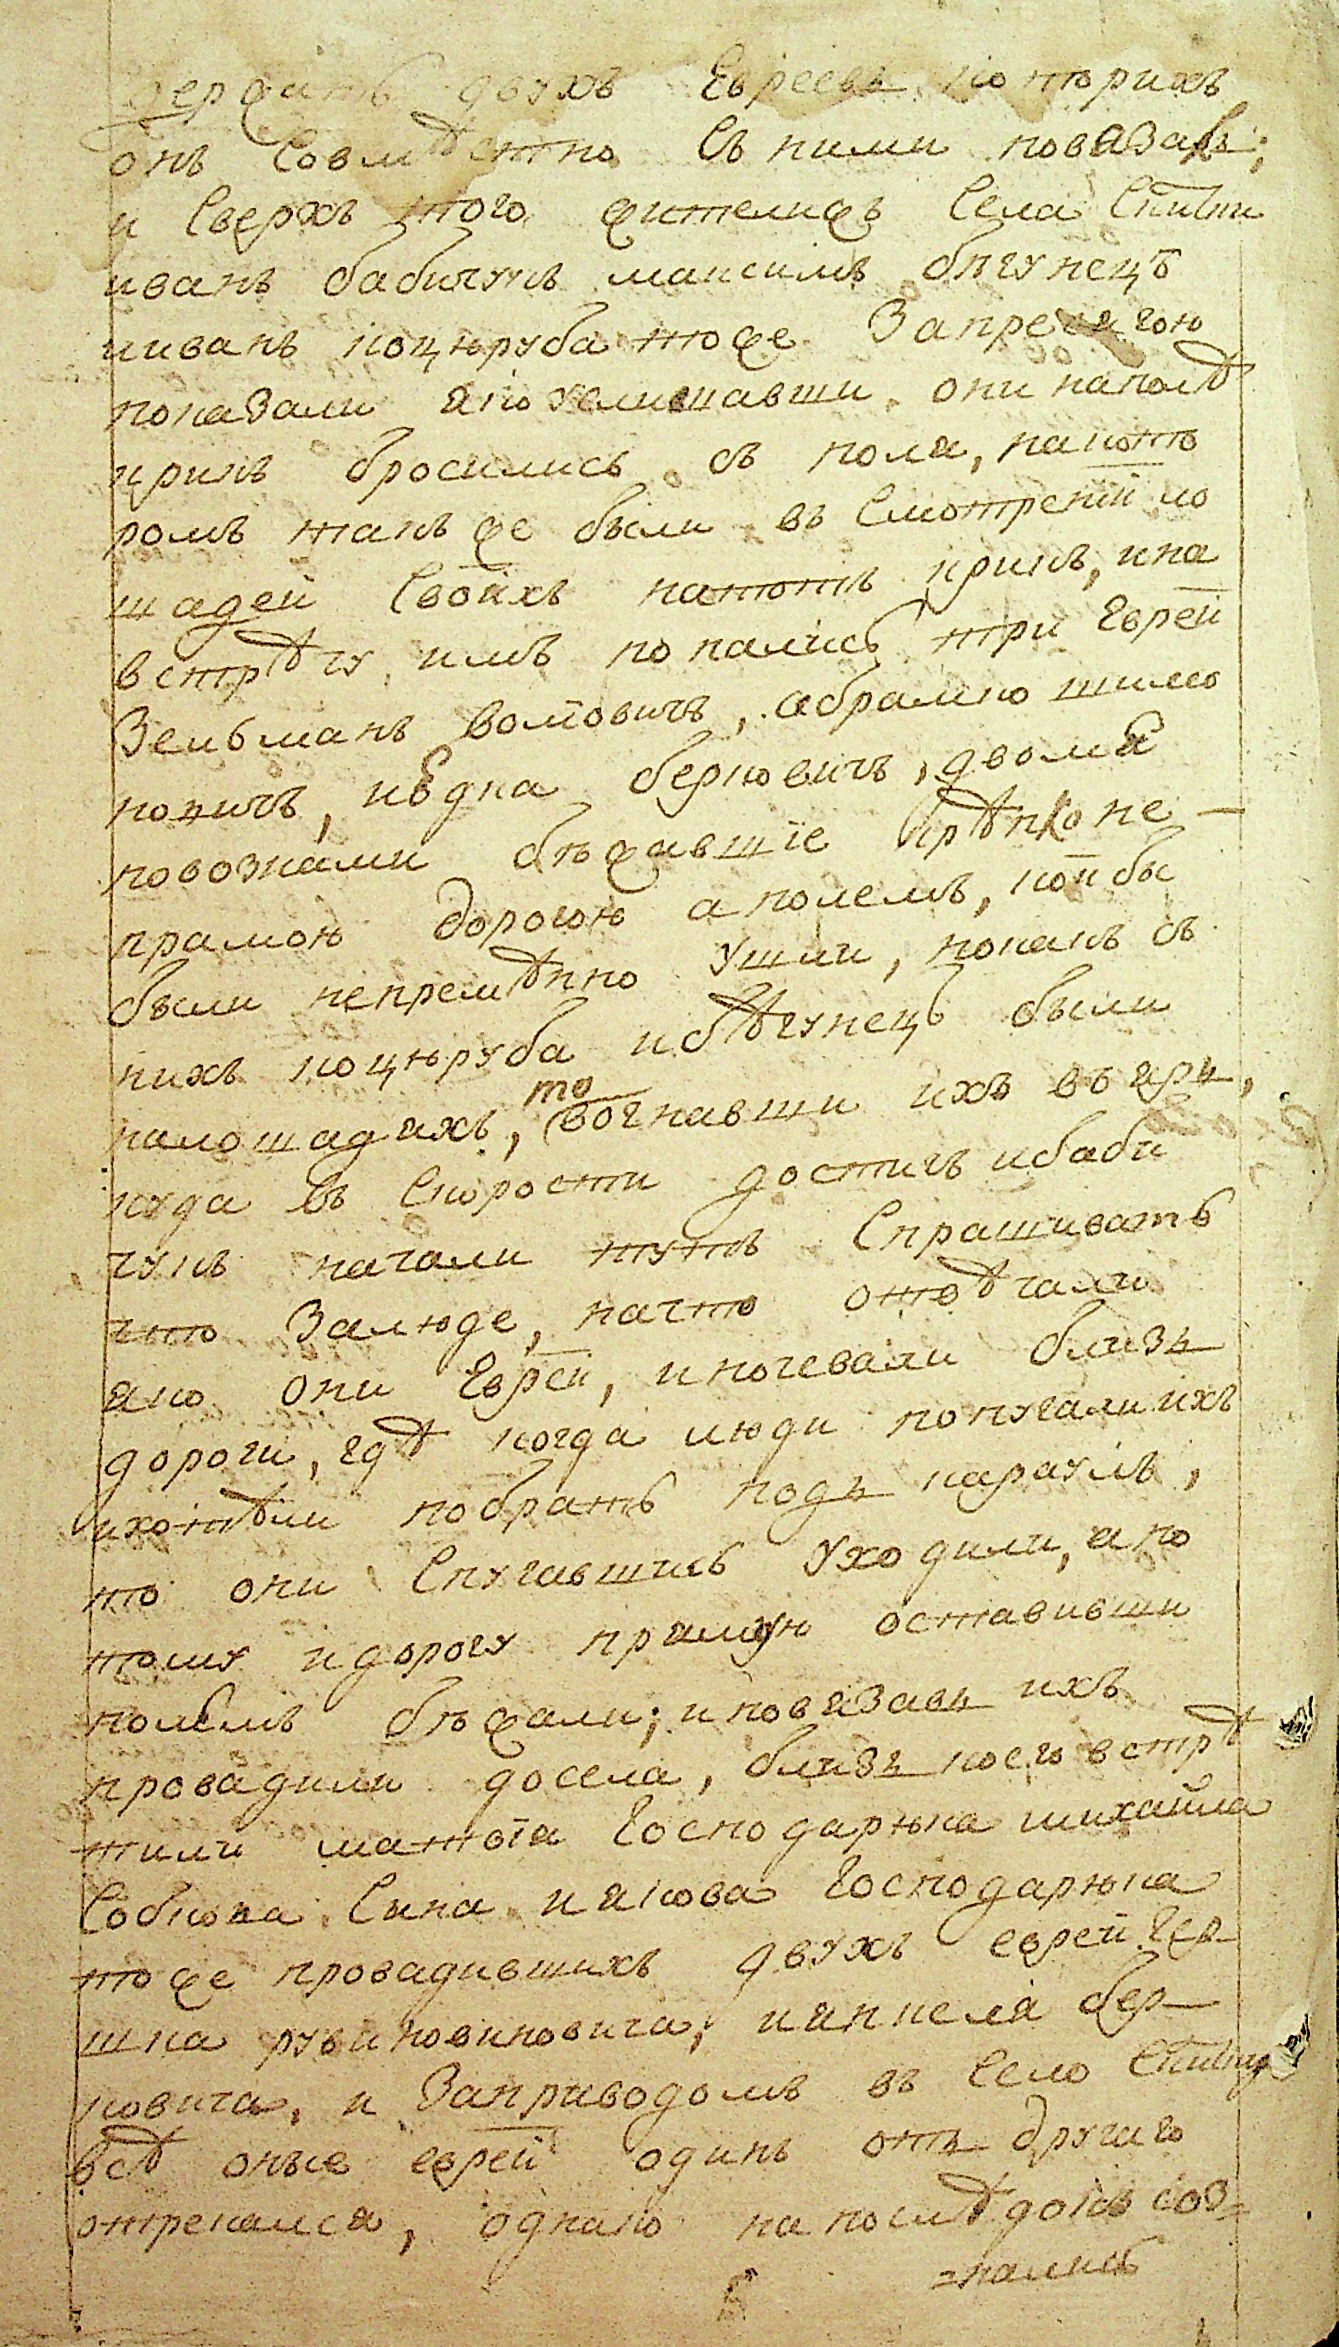 держать двухъ Евреевъ которихъ
онъ Совмѣстно Съ ними повязалъ;
и Сверхъ того жителижъ Села
иванъ бабичукъ максимъ бѣгунецъ
ииванъ коцюруба тоже Заприсягою
показали якоуслишавши они наполѣ
крикъ бросились съ поля, накото
ромъ такъ же были въ Смотреніи ло
шадей Своихъ натотъ крикъ, ина
встрѣчу имъ попались три Еврей
Зельманъ Волковичъ, абрамко шимо
новичъ, иЕдка берковичъ, двомя
повозками бѣжавшіе крѣпко не
прамою дорогою а полемъ, кои бы
были непремѣнно ушли, покакъ съ
нихъ коцюруба ибѣгунецъ были
налошадяхъ, то вогнавши ихъ въ яръ,
куда въ Скорости достигъ ибаби
чукъ начали тутъ Спрашивать
что Залюде, начто отвѣчали
яко они Евреи, иночевали близъ
дороги, гдѣ когда люди попугали ихъ
ихотѣли побрать подъ караулъ,
то они Спугавшись уходили, апо
тому идорогу прямую оставивши
полемъ бѣжали; иповязавъ ихъ
провадили досела, близъ коего встрѣ
тили матвѣя Господарюка михайла
Собкова Сина иякова Господарюка
тоже провадившихъ двухъ еврей Гер
шка рувиновиновича, иянкеля бер
ковича, и Заприводомъ въ Село
всѣ оные еврей одинъ отъ другаго
отрекался, однако напослѣдокъ соз=
=нались